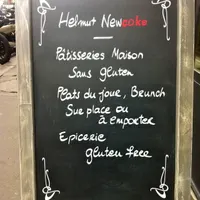 Helmut Newcake
Pâtisseries Maison
Sans gluten
Plats du jour, Brunch
Sur place ou
à emporter
Epicerie
gluten free